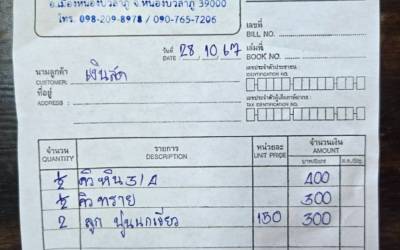 อ.เมืองหนองบัวลำภู จ.หนองบัวลำภู 39000
โทร. 098-209-8978 / 090-765-7206
เลขที่
BILL NO.
วันที่ DATE 28 10 67
เล่มที่
BOOK NO.
นามลูกค้า CUSTOMER: เงินสด
เลขประจำตัวประชาชน :
IDENTIFICATION NO.
ที่อยู่ ADDRESS :
เลขประจำตัวผู้เสียภาษีอากร :
TAX IDENTIFICATION NO.
จำนวน QUANTITY รายการ DESCRIPTION หน่วยละ UNIT PRICE จำนวนเงิน AMOUNT
½ คิว หิน 3/4 400
½ คิว ทราย 300
2 ลูก ปูนนกเขียว 150 300